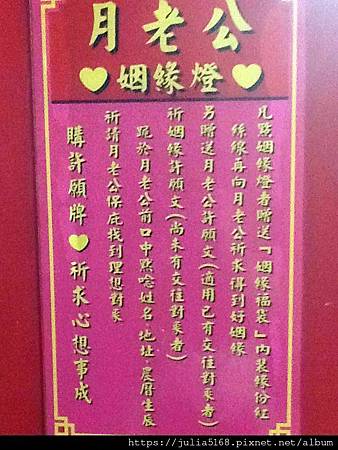 月老公
姻緣燈
凡點姻緣燈者贈送「姻緣福袋」內裝緣份紅
絲線再向月老公祈求得到好姻緣
另贈送月老公許願文(適用已有交往對象者)
祈姻緣許願文(尚未有交往對象者)
跪於月老公前口中默唸姓名.地址.農曆生辰
祈請月老公保庇找到理想對象
購許願牌 祈求心想事成
https://julia5168.pixnet.net/album